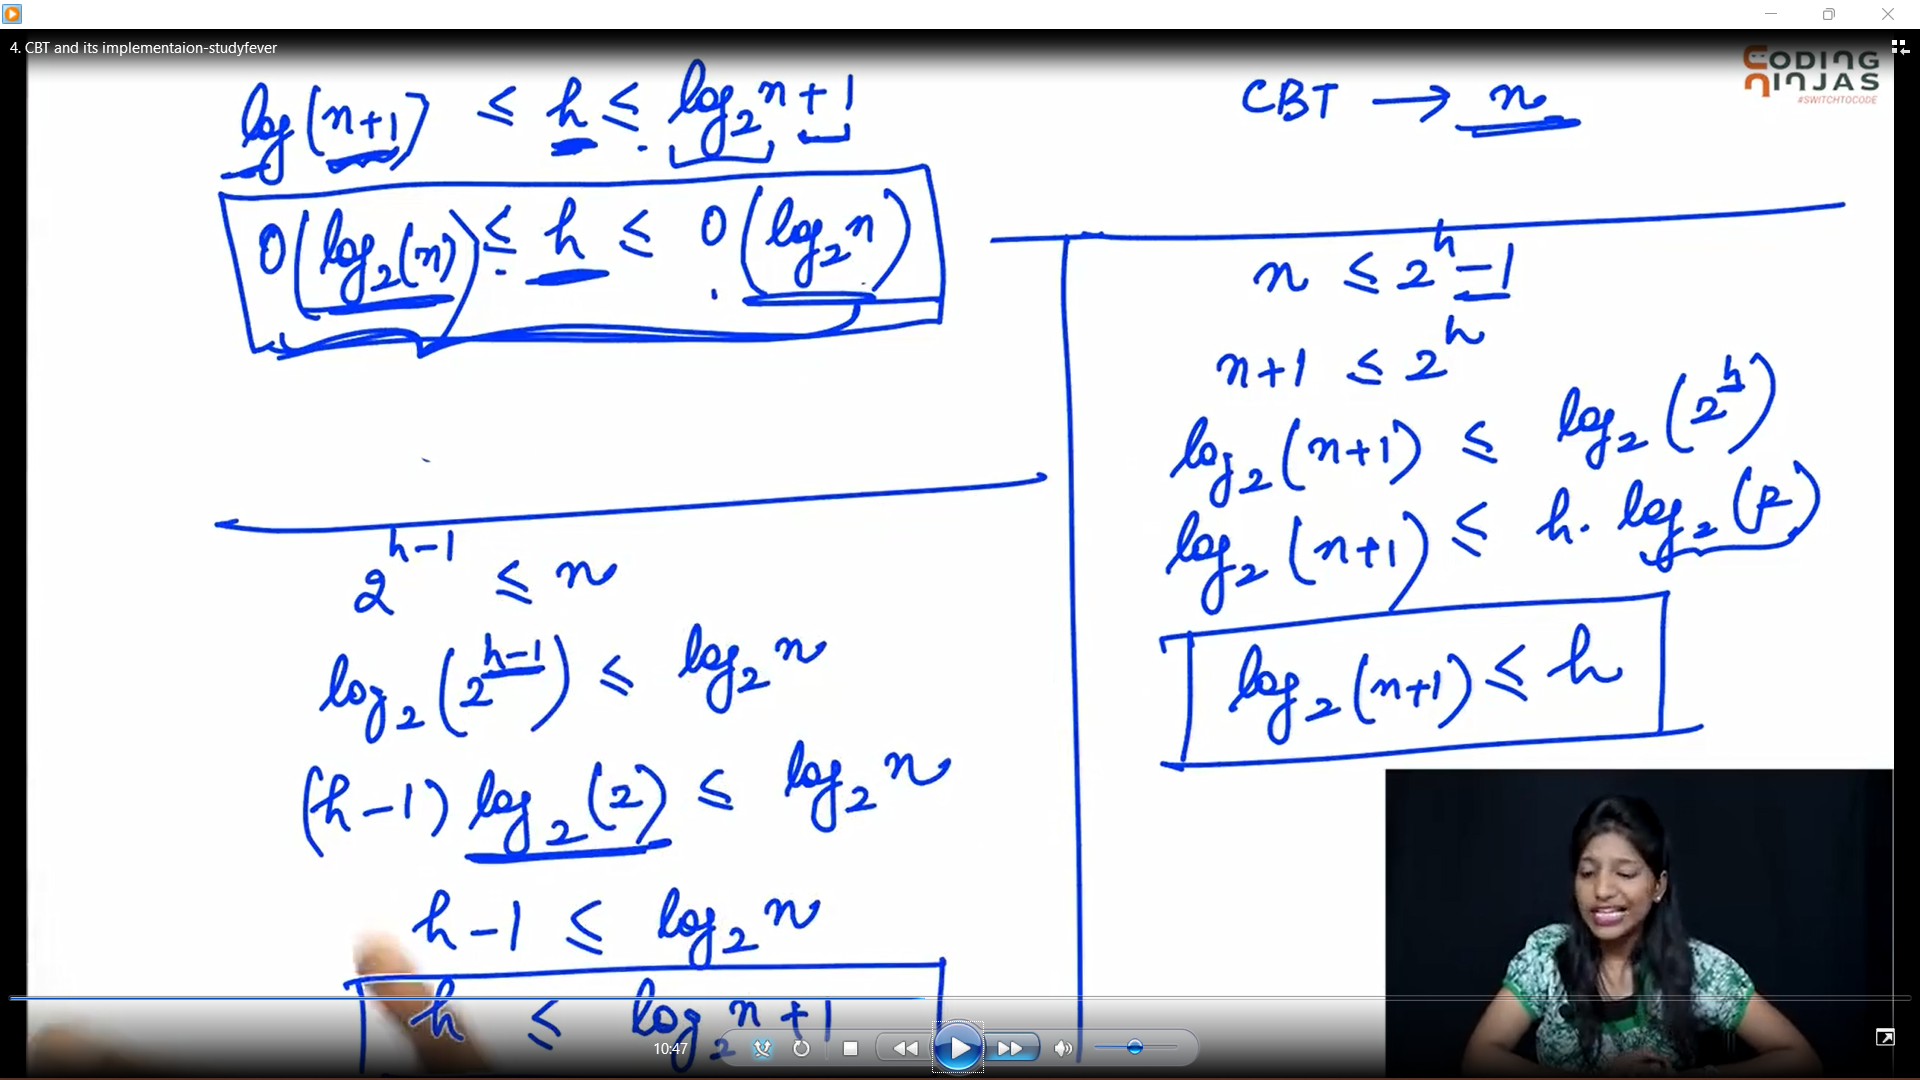 4. CBT and its implementaion-studyfever
CODING
NINJAS
#SWITCHTOCODE
log(n+1) ≤ h ≤ log₂n+1
O(log₂(n)) ≤ h ≤ O(log₂n)
2^(h-1) ≤ n
log₂(2^(h-1)) ≤ log₂n
(h-1) log₂(2) ≤ log₂n
h-1 ≤ log₂n
h ≤ log₂n+1
CBT → n
n ≤ 2^h -1
n+1 ≤ 2^h
log₂(n+1) ≤ log₂(2^h)
log₂(n+1) ≤ h. log₂
log₂(n+1) ≤ h
10:47